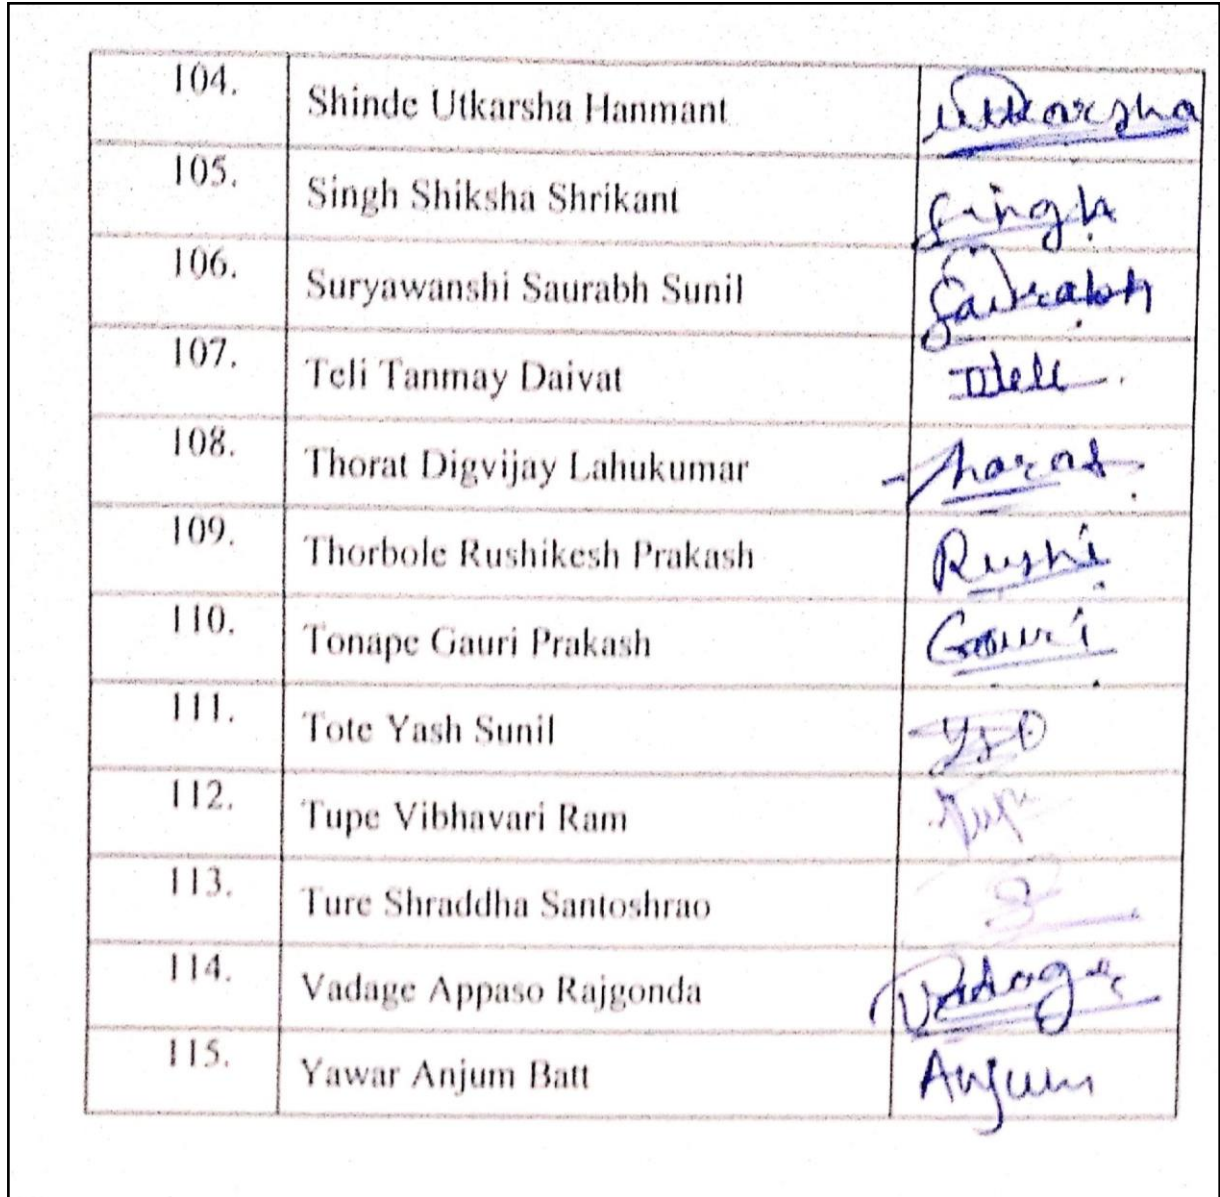 104. Shinde Utkarsha Hanmant Utkarsha
105. Singh Shiksha Shrikant Singh
106. Suryawanshi Saurabh Sunil Saurabh
107. Teli Tanmay Daivat Teli
108. Thorat Digvijay Lahukumar Thorat
109. Thorbole Rushikesh Prakash Rushi
110. Tonape Gauri Prakash Gauri
111. Tote Yash Sunil
112. Tupe Vibhavari Ram Tupe
113. Ture Shraddha Santoshrao
114. Vadage Appaso Rajgonda Vadage
115. Yawar Anjum Batt Anjum